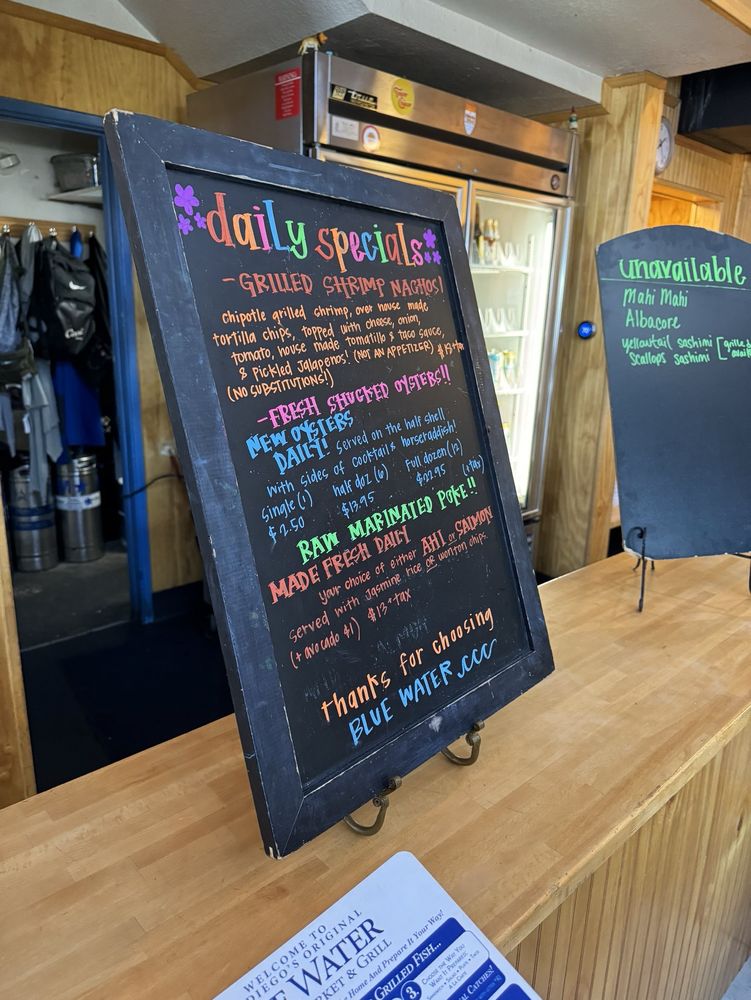 daily specials
-GRILLED SHRIMP NACHOS!
chipotle grilled shrimp, over house made
tortilla chips, topped with cheese, onion,
tomato, house made tomatillo & taco sauce,
& Pickled Jalapeños! (NOT AN APPETIZER)
(NO SUBSTITUTIONS!)
-FRESH SHUCKED OYSTERS!!
NEW OYSTERS
DAILY! served on the half shell
with sides of cocktail & horseradish!
Single (1) half doz (6) Full dozen (12)
$2.50 $13.95 $22.95 (+tax)
RAW MARINATED POKE!!
MADE FRESH DAILY
Your choice of either AHI or SALMON
Served with Jasmine rice OR wonton chips.
(+ avocado $1) $13+tax
thanks for choosing
BLUE WATER
unavailable
Mahi Mahi
Albacore
yellowtail sashimi
Scallops sashimi
WARNING
True
WELCOME TO
DIEGO'S ORIGINAL
WATER
& GRILL
Home And Prepare It Your Way!
GRILLED FISH...
3.
CHOOSE THE WAY
YOU WANT
IT PREPARED